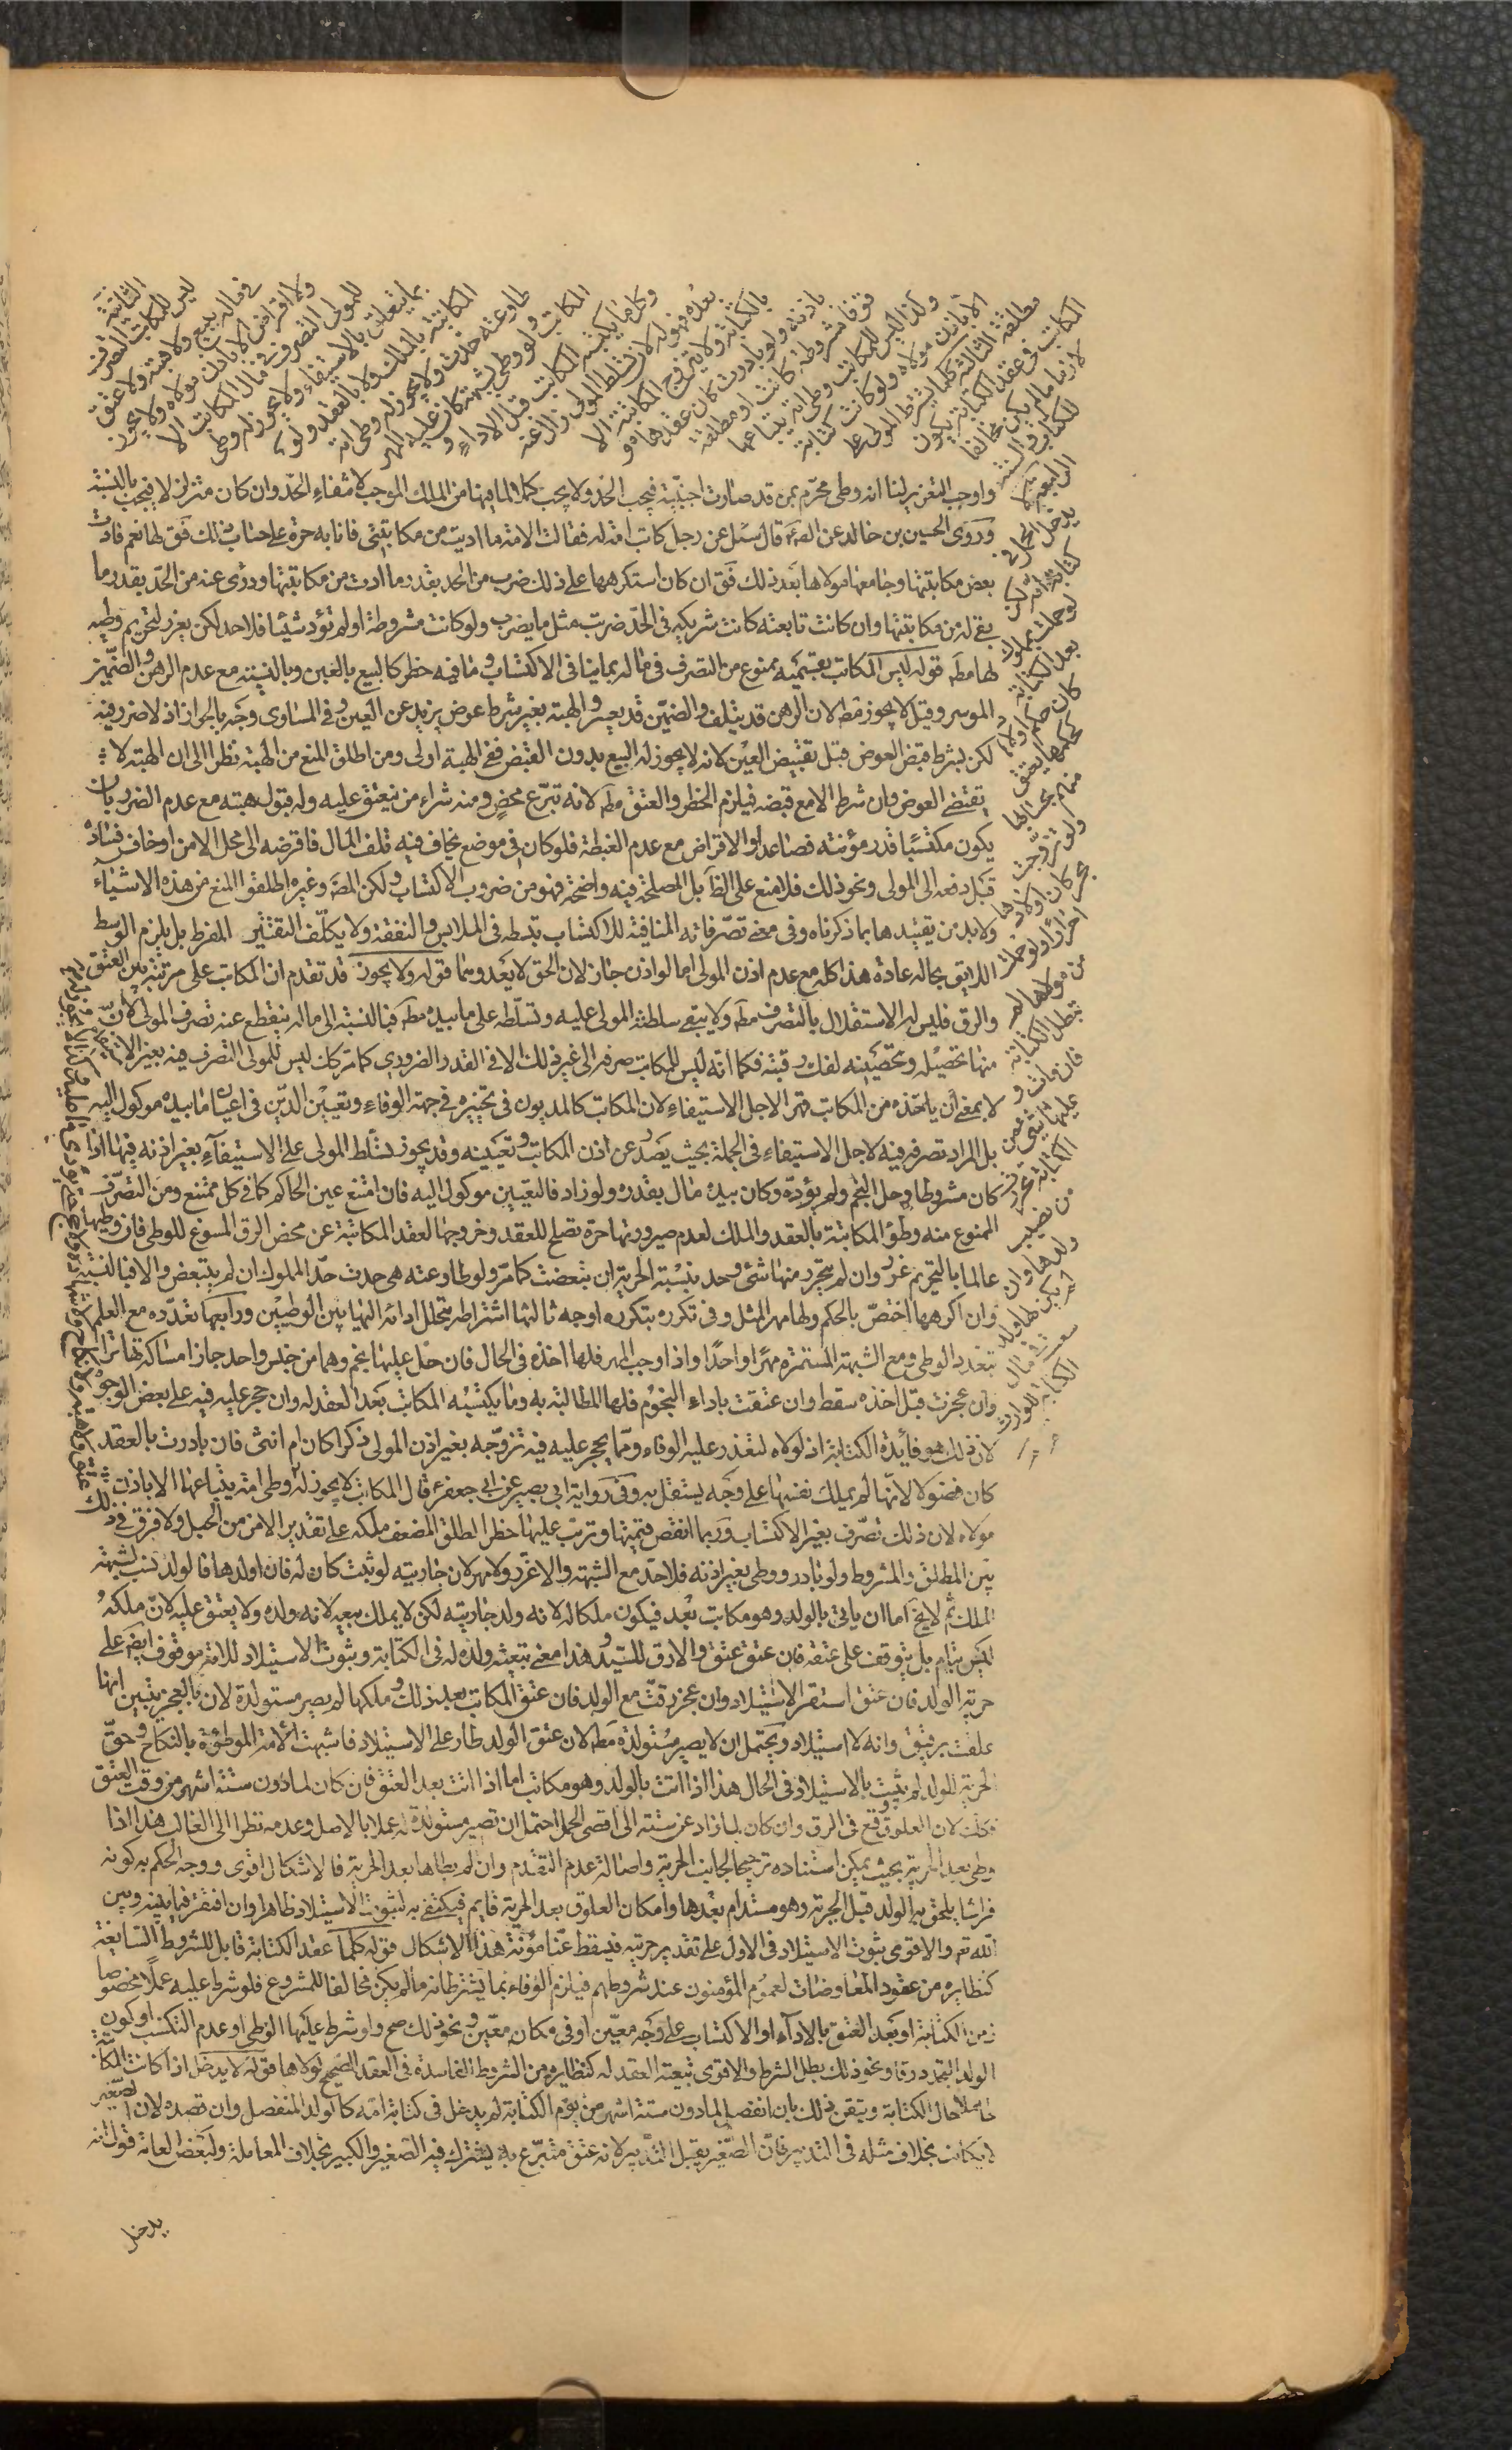 الثانية
ليس للمكاتب التصرف
في ماله ببيع ولا هبة ولا عتق
ولا اقراض الا باذن مولاه ولا يجوز
للمولى التصرف في مال المكاتب الا
بما يتعلق بالاستيفاء ولا يجوز له وطى
المكاتبة بالملك ولا بالعقد ولو
طاوعته حدت ولا يجوز له وطى امة
المكاتب ولو وطى لشبهة كان عليه المهر
وكل ما يكتسبه المكاتب قبل الاداء و
بعده فهو له لان تسلط المولى زال عنه
بالكتابة ولا تتزوج المكاتبة الا
باذنه ولو بادرت كان عقدها مو
قوفا مشروطة كانت او مطلقة
وكذا ليس للمكاتب وطى امة يبتاعها
الا باذن مولاه ولو كانت كتابته
مطلقة الثالثة كلما يشترط المولى على
المكاتب في عقد الكتابة يكون
لازما ما لم يكن مخالفا
للكتاب والسنة
الرابعة لا
يدخل الحمل في
كتابة امه لكن
لو حملت بمملوك
بعد الكتابة
كان حكم اولادها
كحكمها ينعتق
منهم بحسابها
ولو تزوجت
بحر كان اولادها
احرارا ولو حملت
من مولاها لم
تبطل الكتابة
فان مات و
عليها شيء من
مال الكتابة تحررت
من نصيب
ولدها وان
لم يكن لها ولد
سعت في مال
الكتابة للوارث
واوجب التعزير لنا انه وطى محرم بمن قد صارت اجنبية فيجب الحد ولا يجب كملا لما فيها من الملك الموجب لانتفاء الحد وان كان متزلزلا فيجب بالنسبة
وروى الحسين بن خالد عن الصادق قال سئل عن رجل كاتب امة له فقالت الامة ما اديت من مكاتبتي فانا به حرة على حساب ذلك فق لها نعم فادت
بعض مكاتبتها وجامعها مولاها بعد ذلك فق ان كان استكرهها على ذلك ضرب من الحد بقدر ما ادت من مكاتبتها ودرئ عنه من الحد بقدر ما
بقي له من مكاتبتها وان كانت تابعته كانت شريكته في الحد ضربت مثل ما يضرب ولو كانت مشروطة او لم تؤد شيئا فلا حد لكن يعزر لتحريم وطيه
لها مط قوله ليس المكاتب بقسميه ممنوع من التصرف في ماله بما ينافي الاكتساب وما فيه خطر كالبيع بالعين وبالنسية مع عدم الرهن والضمين
الموسر وقيل لا يجوز مط لان الرهن قد يتلف والضمين قد يعسر والهبة بغير شرط عوض يزيد عن العين وفي المساوى وجه بالجواز اذ لا ضرر فيه
لكن بشرط قبض العوض قبل تقبيض العين لانه لا يجوز له البيع بدون القبض ففي الهبة اولى ومن اطلق المنع من الهبة نظر الى ان الهبة لا
يقتضي العوض وان شرط الا مع قبضه فيلزم الخطر والعتق مط لانه تبرع محض ومنه شراء من ينعتق عليه وله قبول هبته مع عدم الضرر بان
يكون مكتسبا قدر مؤنته فصاعدا والاقراض مع عدم الغبطة فلو كان في موضع يخاف فيه تلف المال فاقرضه الى محل الامن او خاف فساده
قبل دفعه الى المولى ونحو ذلك فلا منع على الظاهر بل المصلحة فيه واضحة فهو من ضروب الاكتساب ولكن المص وغيره اطلقوا المنع من هذه الاشياء
ولا بد من تقييدها بما ذكرناه وفي معنى تصرفاته المنافية للاكتساب تبسطه في الملابس والنفقة ولا يكلف التقتير المفرط بل يلزم الوسط
اللايق بحاله عادة هذا كله مع عدم اذن المولى اما لو اذن جاز لان الحق لا يعدوهما قوله ولا يجوز قد تقدم ان المكاتب على مرتبة بين العتق
والرق فليس له الاستقلال بالتصرف مط ولا يبقى سلطنة المولى عليه وتسلطه على ما بيده مط فبالنسبة الى ماله ينقطع عنه تصرف المولى لان
منها تحصيله وتحصينه لفك رقبته فكما انه ليس للمكاتب صرفه الى غير ذلك الا في القدر الضروري كما مر كان ليس للمولى التصرف فيه بغير الاستيفاء
لا بمعنى ان ياخذه من المكاتب قهرا لاجل الاستيفاء لان المكاتب كالمديون في تخييره في جهة الوفاء وتعيين الدين في اعيان ما بيده موكول اليه
بل المراد تصرفه فيه لاجل الاستيفاء في الجملة بحيث يصدر عن اذن المكاتب وتعيينه وقد يجوز تسلط المولى على الاستيفاء بغير اذنه فيها اذا
كان مشروطا وحل النجم ولم يؤده وكان بيده مال بقدره ولو زاد فالتعيين موكول اليه فان امتنع عين الحاكم كما في كل ممتنع ومن التصرف
الممنوع منه وطؤ المكاتبة بالعقد والملك لعدم صيرورتها حرة تصلح للعقد وخروجها لعقد المكاتبة عن محض الرق المسوغ للوطى فان وطيها
عالما بالتحريم عزر وان لم يتحرر منها شيء وحد بنسبة الحرية ان تبعضت كما مر ولو طاوعته هي حدت حد المملوك ان لم يتبعض والا فبالنسبة
وان اكرهها اختص بالحكم ولها مهر المثل وفي تكرره بتكرره اوجه ثالثها اشتراطه بتخلل اداء المهر بين الوطيين ورابعها تعدده مع العلم
بتعدد الوطى ومع الشبهة المستمرة مهرا واحدا واذا وجب المهر فلها اخذه في الحال فان حل عليها نجم وهما من جنس واحد جاز امساكه تقاصا
وان عجزت قبل اخذه سقط وان عتقت باداء النجوم فلها المطالبة به وما يكتسبه المكاتب بعد العقد له وان حجر عليه فيه على بعض الوجوه
لان ذلك هو فائدة الكتابة اذ لولاه لتعذر عليه الوفاء ومما يحجر عليه فيه تزوجه بغير اذن المولى ذكرا كان ام انثى فان بادرت بالعقد
كان فضولا لانها لم يملك نفسها على وجه يستقل به وفي رواية ابي بصير عن ابي جعفر ع قال المكاتب لا يجوز له وطى امة يبتاعها الا باذن
مولاه لان ذلك تصرف بغير الاكتساب وربما انقص قيمتها وترتب عليها خطر الطلق المضعف ملكه على تقدير الامن من الحبل ولا فرق في ذلك
بين المطلق والمشروط ولو بادر ووطى بغير اذنه فلا حد مع الشبهة والا عزر ولا مهر لان جاريته لو ثبت كان له فان اولدها فالولد نسب لشبهة
الملك ثم لا يخ اما ان ياتي بالولد وهو مكاتب بعد فيكون ملكا له لانه ولد جاريته لكن لا يملك بيعه لانه ولده ولا يعتق عليه لان ملكه
ليس بتام بل يتوقف على عتقه فان عتق عتق والا رق للسيد وهذا معنى تبعية ولده له في الكتابة وثبوت الاستيلاد للامة موقوف ايض على
حرية الولد فان عتق استقر الاستيلاد وان عجز رقت مع الولد فان عتق المكاتب بعد ذلك وملكها لم يصير مستولدة لان بالعجز يتبين انها
علقت برقيق وانه لا استيلاد ويحتمل ان لا يصير مستولدة مط لان عتق الولد طار على الاستيلاد فاشبهت الامة الموطوئة بالنكاح وحق
الحرية للولد لم يثبت بالاستيلاد في الحال هذا اذا اتت بالولد وهو مكاتب اما اذا اتت بعد العتق فان كان لما دون ستة اشهر من وقت العتق
فكك لان العلوق وقع في الرق وان كان لما زاد عن ستة الى اقصى الحمل احتمل ان تصير مستولدة له عملا بالاصل وعدمه نظرا الى الغالب هذا اذا
وطى بعد الحرية بحيث يمكن استناده ترجيحا لجانب الحرية واصالة عدم التقدم وان لم يطاها بعد الحرية فالاشكال اقوى ووجه الحكم به كونه
فراشا يلحق به الولد قبل الحرية وهو مستدام بعدها وامكان العلوق بعد الحرية قايم فيكتفى به لثبوت الاستيلاد ظاهرا وان افتقر فيما بينه وبين
الله تع والاقوى ثبوت الاستيلاد في الاول على تقدير حريته فيسقط عنا مؤنة هذا الاشكال قوله كلما عقد الكتابة قابل للشروط السايغة
كنظايره من عقود المعاوضات لعموم المؤمنون عند شروطهم فيلزم الوفاء بما يشترطانه ما لم يكن مخالفا للمشروع فلو شرط عليه عملا مخصوصا
زمن الكتابة او بعد العتق بالاداء او الاكتساب على وجه معين او في مكان معين ونحو ذلك صح ولو شرط عليها الوطى او عدم التكسب او كون
الولد المتجدد رقا ونحو ذلك بطل الشرط والاقوى تبعية العقد له كنظايره من الشروط الفاسدة في العقد الصحيح لولاها قوله لا يدخل اذا كانت المكاتبة
حاملا حال الكتابة وتيقن ذلك بان انفصل لما دون ستة اشهر من يوم الكتابة لم يدخل في كتابة امه كالولد المنفصل وان قصده لان الصغير
لا يكاتب بخلاف مثله في التدبير فان الصغير يقبل التدبير لانه عتق متبرع به يشترك فيه الصغير والكبير بخلاف المعاملة ولبعض العامة قول انه
يدخل